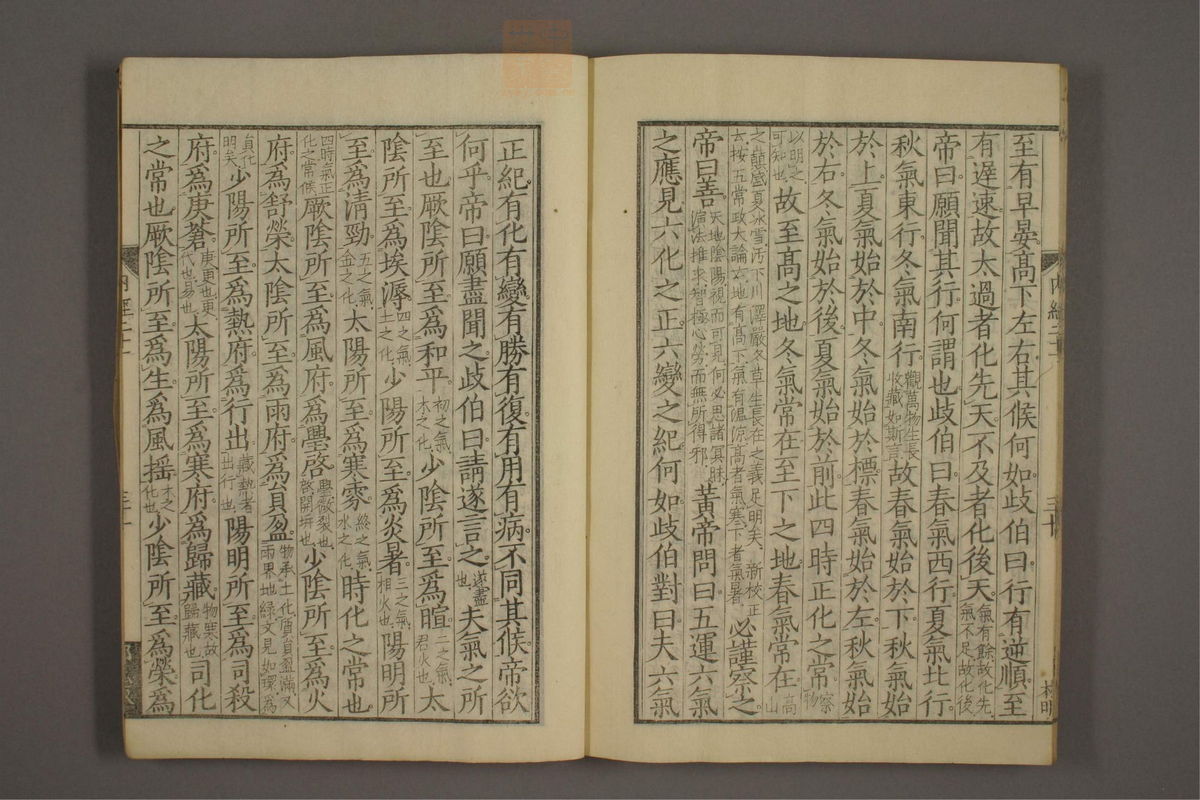 至有早晏高下左右其候何如歧伯曰行有逆順至
有遲速故太過者化先天不及者化後天氣有餘故化先氣不足故化後
帝曰願聞其行何謂也歧伯曰春氣西行夏氣北行
秋氣東行冬氣南行觀萬物生長收藏如斯言故春氣始於下秋氣始
於上夏氣始於中冬氣始於標春氣始於左秋氣始
於右冬氣始於後夏氣始於前此四時正化之常察物
以明之可知也故至高之地冬氣常在至下之地春氣常在高山
之巔盛夏冰雪汚下川澤嚴冬草生長在之義足明矣新校正云按五常政大論云地有高下氣有溫涼高者氣寒下者氣暑必謹察之
帝曰善天地陰陽視而可見何必思諸冥昧演法推求智極心勞而無所得邪黃帝問曰五運六氣
之應見六化之正六變之紀何如歧伯對曰夫六氣
內經二十一
三十
正紀有化有變有勝有復有用有病不同其候帝欲
何乎帝曰願盡聞之歧伯曰請遂言之遂盡也夫氣之所
至也厥陰所至爲和平初之氣木之化少陰所至爲暄二之氣君火也太
陰所至爲埃溽四之氣土之化少陽所至爲炎暑三之氣相火也陽明所
至爲清勁五之氣金之化太陽所至爲寒雰終之氣水之化時化之常也
四時氣正化之常候厥陰所至爲風府爲璺啓璺微裂也啓開坼也少陰所至爲火
府爲舒榮太陰所至爲雨府爲員盈物承土化質員盈滿又雨界地綠文見如環爲
員化明矣少陽所至爲熱府爲行出藏熱者出行也陽明所至爲司殺
府爲庚蒼庚更也更代也易也太陽所至爲寒府爲歸藏物寒故歸藏也司化
之常也厥陰所至爲生爲風搖木之化也少陰所至爲榮爲